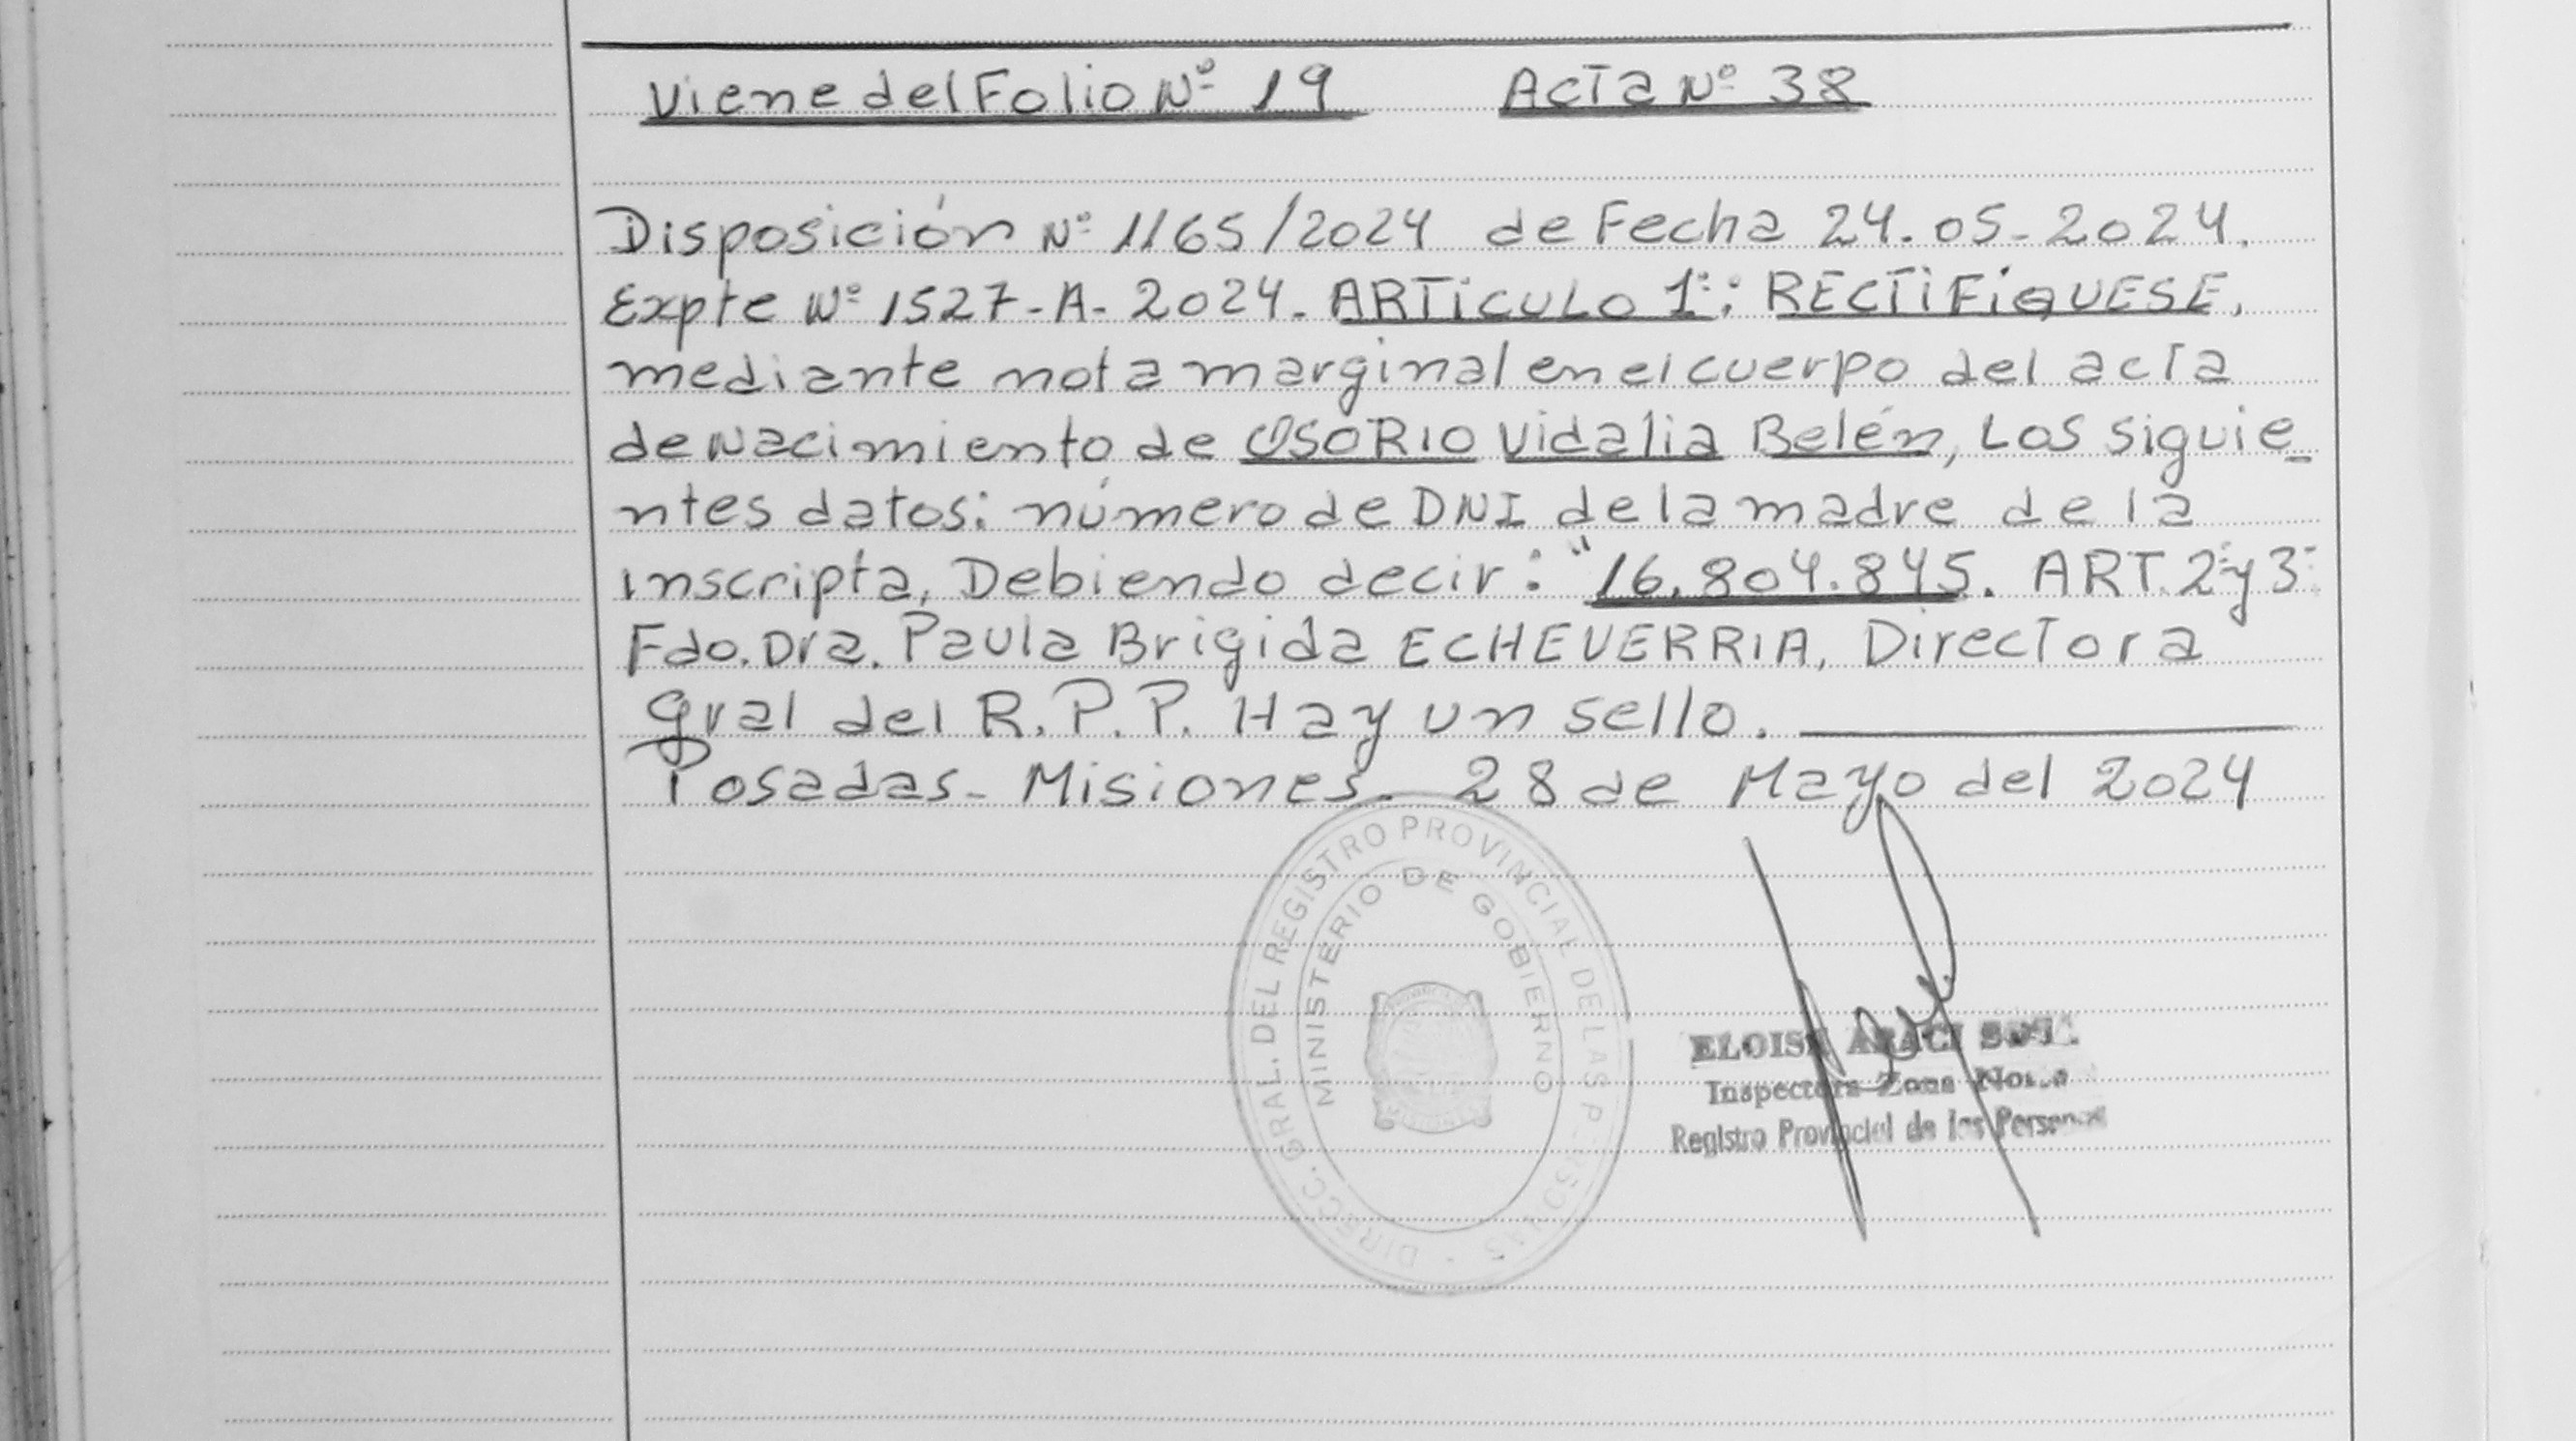 Viene del Folio Nº 19 Acta Nº 38
Disposición Nº 1165/2024 de Fecha 24.05-2024.
Expte Nº 1527-A-2024. ARTICULO 1º: RECTIFíQUESE,
mediante nota marginal en el cuerpo del acta
de Nacimiento de OSORIO Vidalia Belén, Los siguie-
ntes datos: número de DNI de la madre de la
inscripta, Debiendo decir: "16.804.845. ART. 2º y 3º
Fdo. Dra. Paula Brigida ECHEVERRIA, Directora
gral del R.P.P. Hay un sello.
Posadas-Misiones. 28 de Mayo del 2024
DIRECC. GRAL. DEL REGISTRO PROVINCIAL DE LAS PERSONAS
MINISTERIO DE GOBIERNO
ELOISA ARACI
Inspectora Zona
Registro Provincial de las Personas